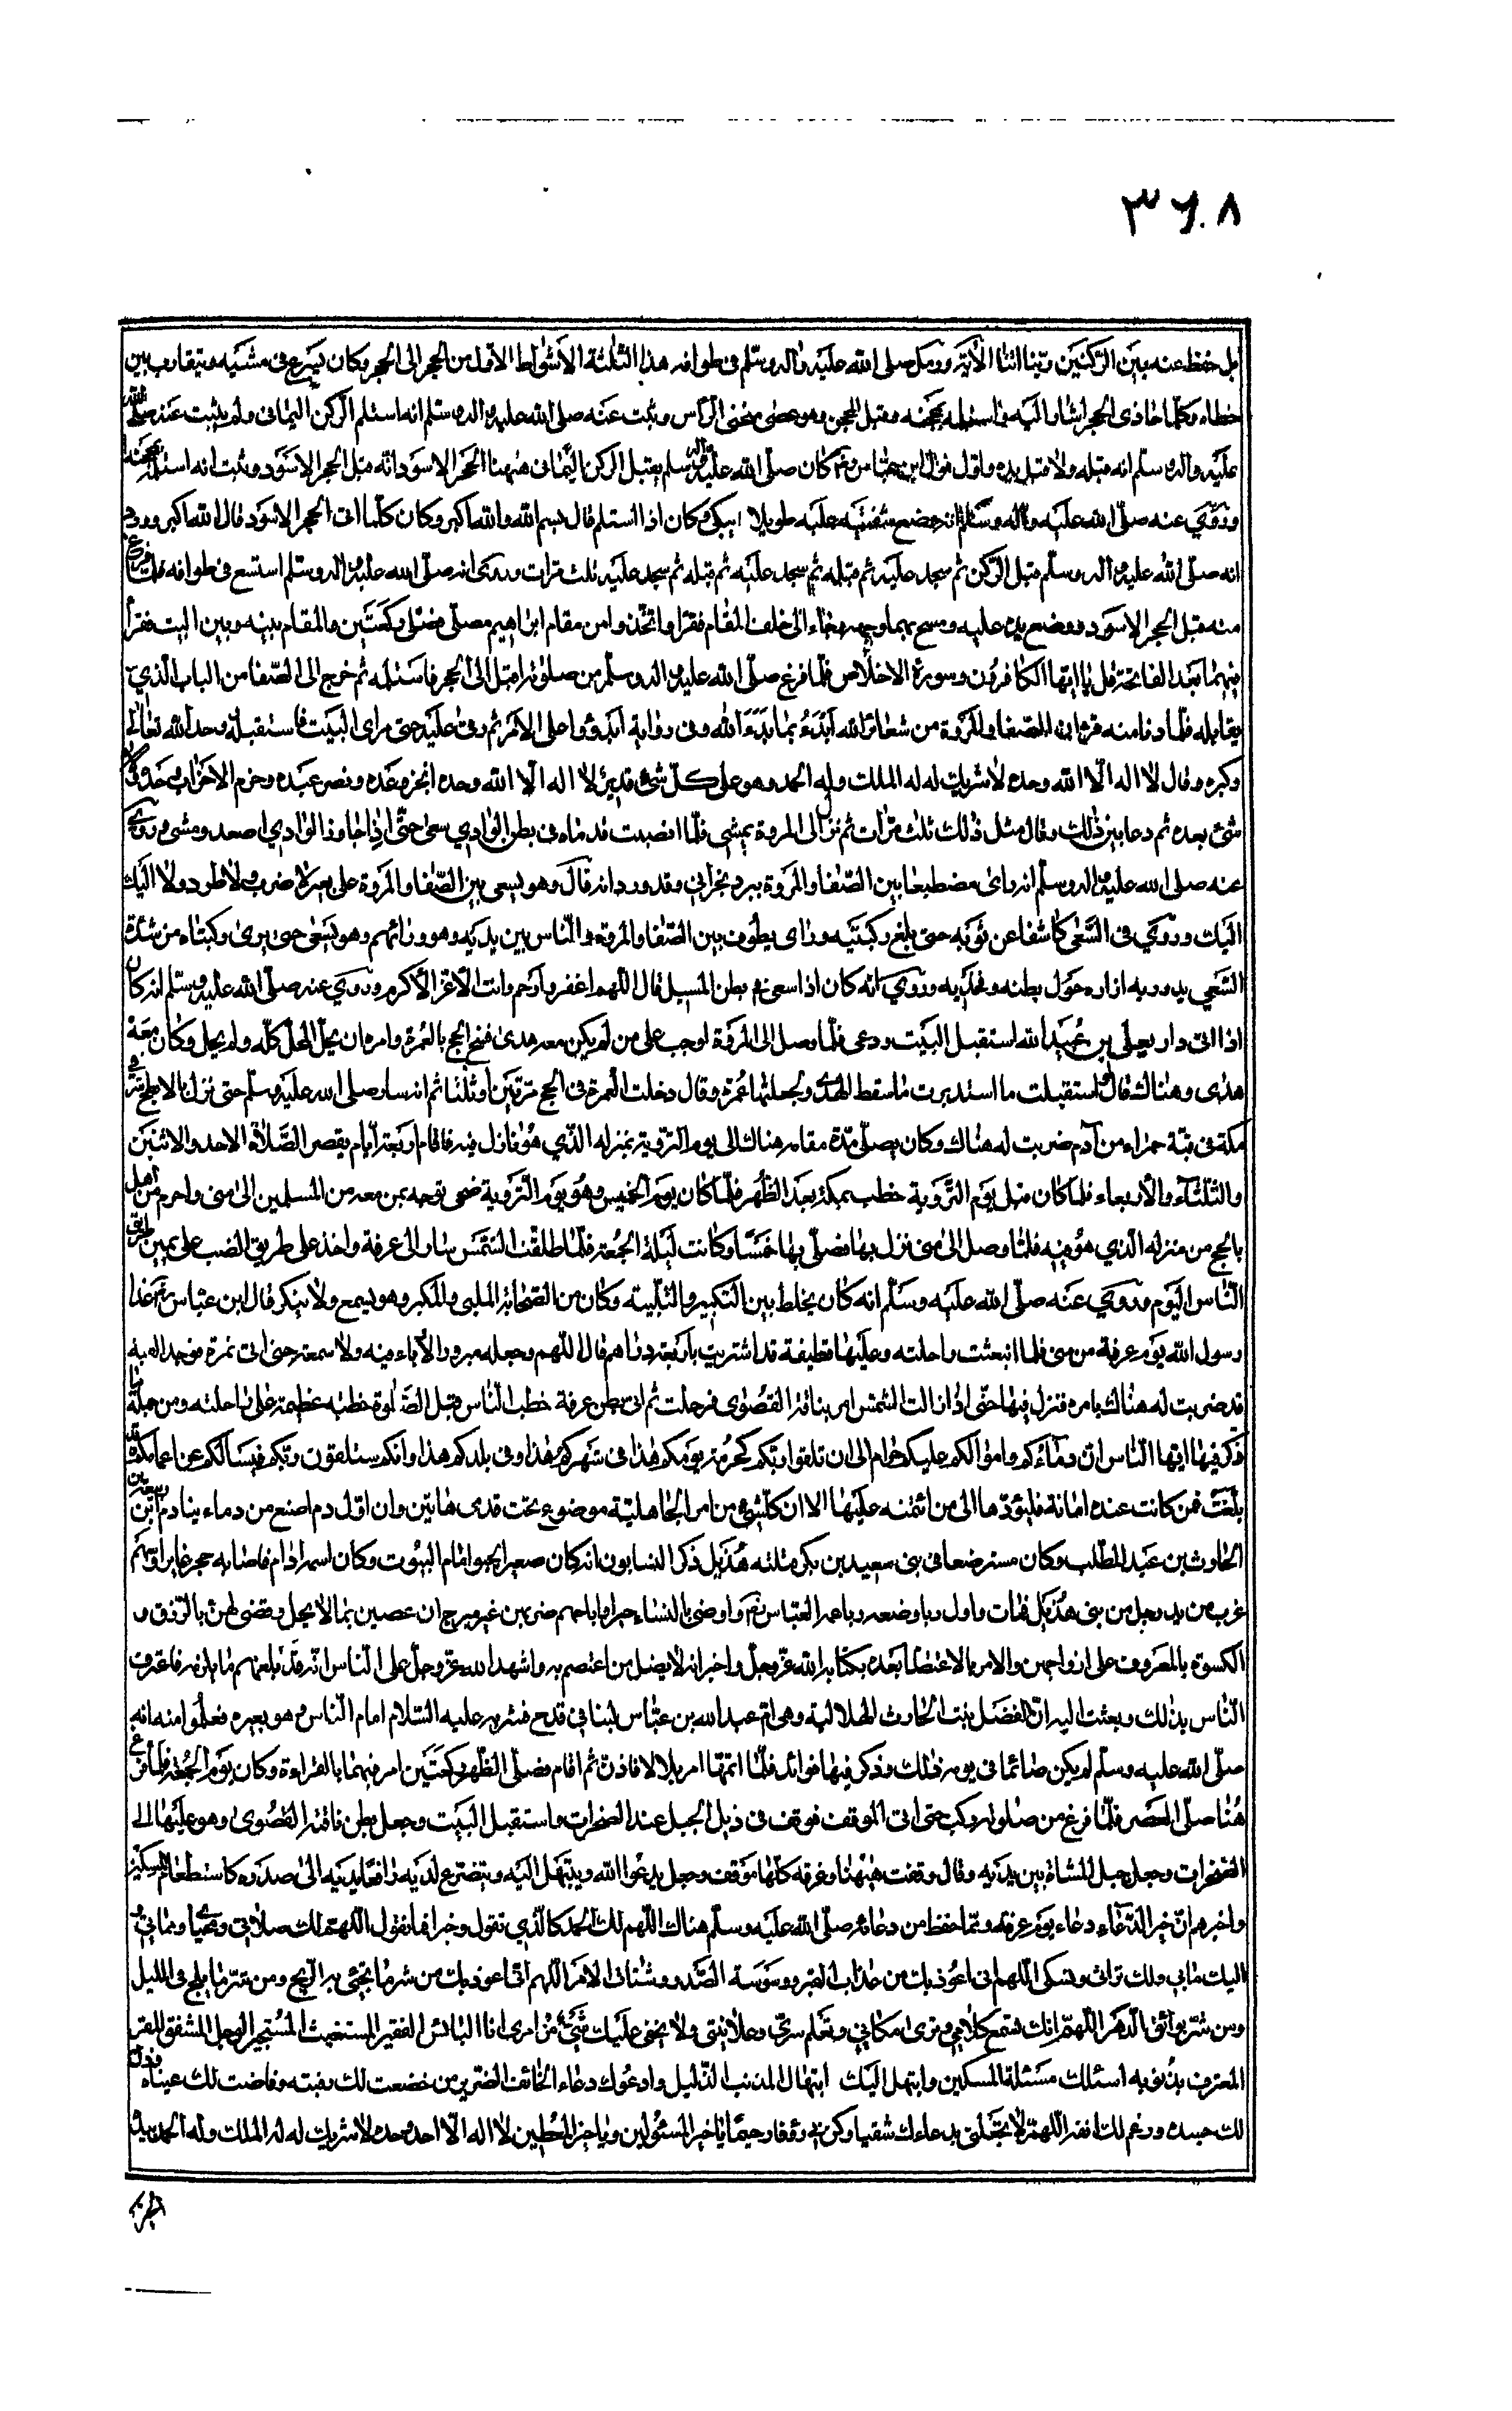 ٣٦٠٨
بل حفظ عنه بين الركنين ربنا اتنا الآية ورمل صلى الله عليه واله وسلم فى طوافه هذا الثلثة الاشواط الاول من الحجر الى الحجر وكان يسرع فى مشيه ويتقارب بين
خطاه وكلما حاذى الحجر اشار اليه فاستلمه بمحجنه وقبل المحجن وهو عصى محنى الراس وثبت عنه صلى الله عليه واله وسلم انه استلم الركن اليمانى ولم يثبت عنه صلى الله
عليه واله وسلم انه قبله ولا قبل يده واول قول ابن عباس رض كان صلى الله عليه واله وسلم يقبل الركن اليمانى منهنا الحجر الاسود انه قبل الحجر الاسود وثبت انه استلمه بمحجنه
وروي عنه صلى الله عليه واله وسلم انه وضع شفتيه عليه طويلا يبكى وكان اذا استلم قال بسم الله والله اكبر وكان كلما اتى الحجر الاسود قال الله اكبر وورد
انه صلى الله عليه واله وسلم قبل الركن ثم سجد عليه ثم قبله ثم سجد عليه ثم قبله ثم سجد عليه ثلث مرات وروى انه صلى الله عليه واله وسلم استسع فى طوافه فلما فرغ
منه قبل الحجر الاسود ووضع يديه عليه ومسح بهما وجهه فجاء الى خلف المقام فقرا واتخذوا من مقام ابراهيم مصلى فصلى ركعتين والمقام بينه وبين البيت فقرأ
فيهما بعد الفاتحة قل يا ايها الكافرون وسورة الاخلاص فلما فرغ صلى الله عليه واله وسلم من صلوته اقبل الى الحجر فاستلمه ثم خرج الى الصفا من الباب الذي
يقابله فلما دنا منه قرا ان الصفا والمروة من شعائر الله ابدء بما بدء الله وفى رواية ابدؤا على الامر ثم رقى عليه حتى راى البيت فاستقبله وحد الله تعالى
وكبره وقال لا اله الا الله وحده لا شريك له له الملك وله الحمد وهو على كل شئ قدير لا اله الا الله وحده انجز وعده ونصر عبده وحزم الاحزاب وحده لا
شئ بعده ثم دعا بين ذلك وقال مثل ذلك ثلث مرات ثم نزل الى المروة يمشى فلما انصبت قدماه فى بطن الوادي سعى حتى اذا جاوز الوادي اصعد ومشى وروى
عنه صلى الله عليه واله وسلم انه راى مضطبعا بين الصفا والمروة ببرد نجراني وقد ورد انه قال وهو يسعى بين الصفا والمروة على بعير لا ضرب ولا طرد ولا اليك
اليك وروي فى السعى كاشفا عن ثوبه حتى بلغ ركبتيه وراى يطوف بين الصفا والمروة والناس بين يديه وهو ورائهم وهو يسعى حتى يرى ركبتاه من شدة
السعي يدور به ازاره حول بطنه وفخذيه وروي انه كان اذا سعى فى بطن المسيل قال اللهم اغفر وارحم وانت الاعز الاكرم وروي عنه صلى الله عليه وسلم انه كان
اذا اتى دار يعلى بن عبيد الله استقبل البيت ودعى فلما وصل الى المروة اوجب على من لم يكن معه هدى فسخ الحج بالعمرة وامره ان يحل الحل كله ولم يحل وكان معه
هدى وهنالك قال لو استقبلت ما استدبرت ما سقط الهدى ولجعلتها عمرة وقال دخلت العمرة فى الحج مرتين او ثلثا ثم انه سار صلى الله عليه وسلم حتى نزل بالابطح
مكة فى قبة حمراء من آدم ضربت له هناك وكان يصلى مدة مقامه هناك الى يوم التروية بمنزله الذي هو نازل فيه فاقام اربعة ايام يقصر الصلاة الاحد والاثنين
والثلثاء والأربعاء فلما كان قبل يوم التروية خطب بمكة بعد الظهر فلما كان يوم الخميس وهو يوم التروية ضحى توجه بمن معه من المسلمين الى منى واحرم من اهل
بالحج من منزله الذي هو فيه فلما وصل الى منى نزل بها فصلى بها خمسا وكانت ليلة الجمعة فلما طلقت الشمس سار الى عرفة واخذ على طريق الضب على يمين طريق
الناس اليوم وروي عنه صلى الله عليه وسلم انه كان يخلط بين التكبير والتلبية وكان من الصحابة الملبى والمكبر وهو يسمع ولا ينكر قال ابن عباس رض غدا
رسول الله يوم عرفة من منى فلما انبعثت راحلته وعليها قطيفة قد اشتريت باربعة دراهم قال اللهم وجعله مبرور الا رياء فيه ولا سمعة حتى اتى نمرة فوجد القبة
قد ضربت له هناك بامره فنزل فيها حتى اذا زالت الشمس امر بناقة القصوى فرحلت ثم اتى بطن عرفة خطب الناس قبل الصلوة خطبة عظيمة على راحلته ومن جملة ما
ذكر فيها ايها الناس ان دماءكم واموالكم عليكم حرام الى ان تلقوا ربكم كحرمة يومكم هذا فى شهركم هذا وفى بلدكم هذا وانكم ستلقون ربكم فيسالكم عن اعمالكم وقد
بلغت فمن كانت عنده امانة فليؤدها الى من ائتمنه عليها الا ان كل شئ من امر الجاهلية موضوع تحت قدمى هاتين وان اول دم اضع من دماء ينا دم ابن ربيعة بن
الحارث بن عبد المطلب وكان مسترضعا فى بنى سعيد بن بكر قتلته هذيل ذكر النسابون انه كان صغيرا يحبو امام البيوت وكان اسمه ادام فاصابه حجر غاير اوسهم
غرب من يد رجل من بنى هذيل فمات واول ربا وضعه ربا عمه العباس رض واوضى بالنساء خيرا واباحهم ضربهن غير مبرح ان عصين بما لا يحل وقضى لهن بالرزق و
الكسوة بالمعروف على ازواجهن والامر بالاعتصام بعده بكتاب الله عز وجل واخبر انه لا يضل من اعتصم به واشهد الله عز وجل على الناس انه قد بلغهم ما يلزمه فاعترف
الناس بذلك وبعثت اليه ام الفضل بنت الحارث الهلالية وهى ام عبد الله بن عباس لبنا فى قدح فشربه عليه السلام امام الناس وهو بعيره فعلموا منه انه
صلى الله عليه وسلم لم يكن صائما فى يومه ذلك وذكر فيها فوائد فلما اتمها امر بلالا فاذن ثم اقام فصلى الظهر ركعتين امر فيهما بالقراءة وكان يوم الجمعة فلما فرغ
هنا صلى العصر فلما فرغ من صلوته ركب حتى اتى الموقف فوقف فى ذيل الجبل عند الصخرات واستقبل البيت وجعل بطن ناقته القصوى وهو عليها الى
الصخرات وجعل حبل المشاة بين يديه وقال وقفت هيهنا وعرفه كلها موقف وجعل يدعو الله ويبتهل اليه ويتضرع لديه رافعا يديه الى صدره كاستطعام المسكين
واخبرهم ان خير الدعاء دعاء يوم عرفة ومما حفظ من دعائه صلى الله عليه وسلم هناك اللهم لك الحمد كالذي تقول وخيرا مما نقول اللهم لك صلاتي ومحياي ومماتي و
اليك مابي ولك تراثى ونسكى اللهم انى اعوذ بك من عذاب القبر ووسوسة الصدر وشتات الامر اللهم انى اعوذ بك من شر ما يجئى به الريح ومن شر ما يلج فى الليل
ومن شر بوائق الدهر اللهم انك تسمع كلامي وترى مكاني وتعلم سري وعلانيتى ولا يخفى عليك شئ من امرى انا البائس الفقير المستغيث المستجير الوجل المشفق المقر
المعترف بذنوبه اسئلك مسئلة المسكين وابتهل اليك ابتهال المذنب الذليل وادعوك دعاء الخائف الضرير من خضعت لك رقبته وفاضت لك عيناه وذل
لك جسده ورغم لك انفه اللهم لا تجعلنى بدعاءك شقيا وكن بي رؤفا رحيما يا خير المسئولين ويا خير المعطين لا اله الا احد وحده لا شريك له له الملك وله الحمد بيده
الخير